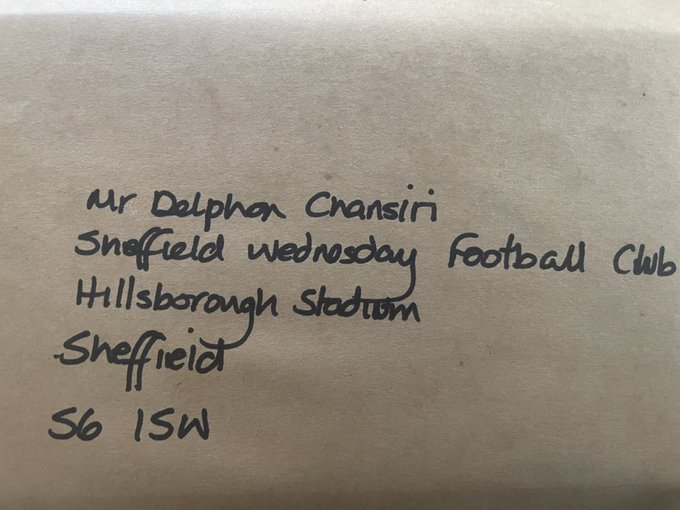 Mr Delphon Chansiri
Sheffield Wednesday Football Club
Hillsborough Stadium
Sheffield
S6 1SW